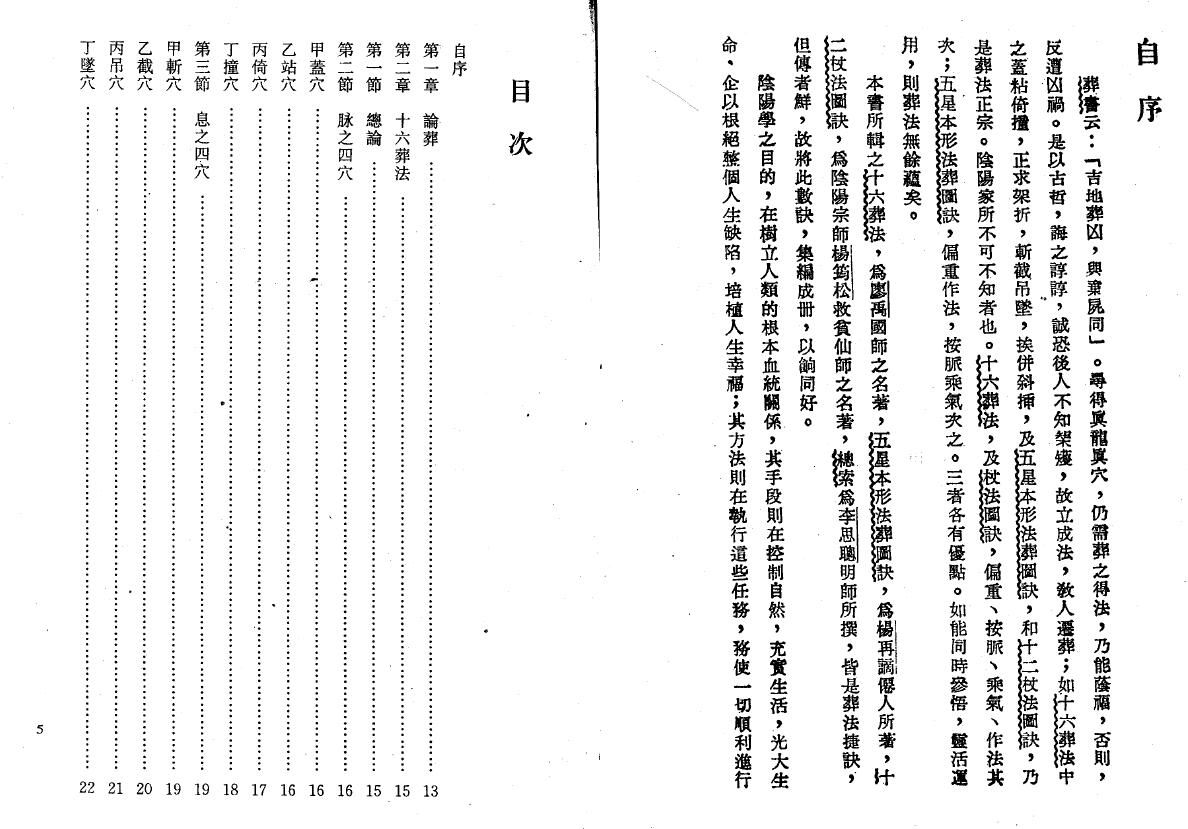 自序
葬書云：「吉地葬凶，與棄屍同」。尋得眞龍眞穴，仍需葬之得法，乃能蔭福，否則，
反遭凶禍。是以古哲，誨之諄諄，誠恐後人不知榮殘，故立成法，教人遷葬；如十六葬法中
之蓋粘倚撞，正求架折，斬截吊墜，挨併斜揷，及五星本形法葬圖訣，和十二杖法圖訣，乃
是葬法正宗。陰陽家所不可不知者也。十六葬法，及杖法圖訣，偏重、按脈、乘氣、作法其
次；五星本形法葬圖訣，偏重作法，按脈乘氣次之。三者各有優點。如能同時參悟，靈活運
用，則葬法無餘蘊矣。
本書所輯之十六葬法，爲廖禹國師之名著，五星本形法葬圖訣，爲楊再謫僊人所著，十
二杖法圖訣，爲陰陽宗師楊筠松救貧仙師之名著，總索爲李思聰明師所撰，皆是葬法捷訣，
但傳者鮮，故將此數訣，集編成册，以餉同好。
陰陽學之目的，在樹立人類的根本血統關係，其手段則在控制自然，充實生活，光大生
命、企以根絕整個人生缺陷，培植人生幸福；其方法則在執行這些任務，務使一切順利進行
目次
自序
第一章 論葬 13
第二章 十六葬法 15
第一節 總論 15
第二節 脉之四穴 16
甲蓋穴 16
乙站穴 16
丙倚穴 17
丁撞穴 18
第三節 息之四穴 19
甲斬穴 19
乙截穴 20
丙吊穴 21
丁墜穴 22
5